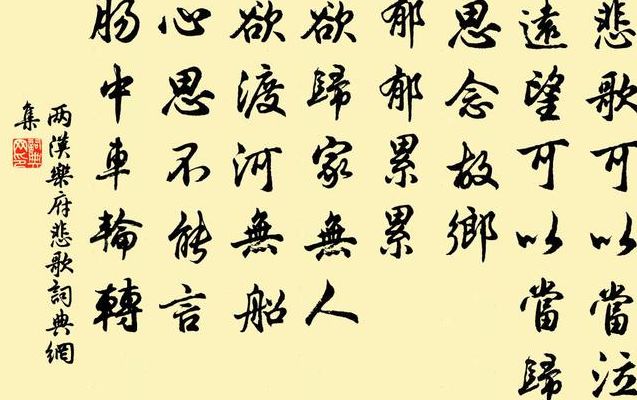 悲歌可以當泣
遠望可以當歸
思念故鄉
郁郁累累
欲歸家無人
欲渡河無船
心思不能言
腸中車輪轉
两漢樂府悲歌詞典網
集